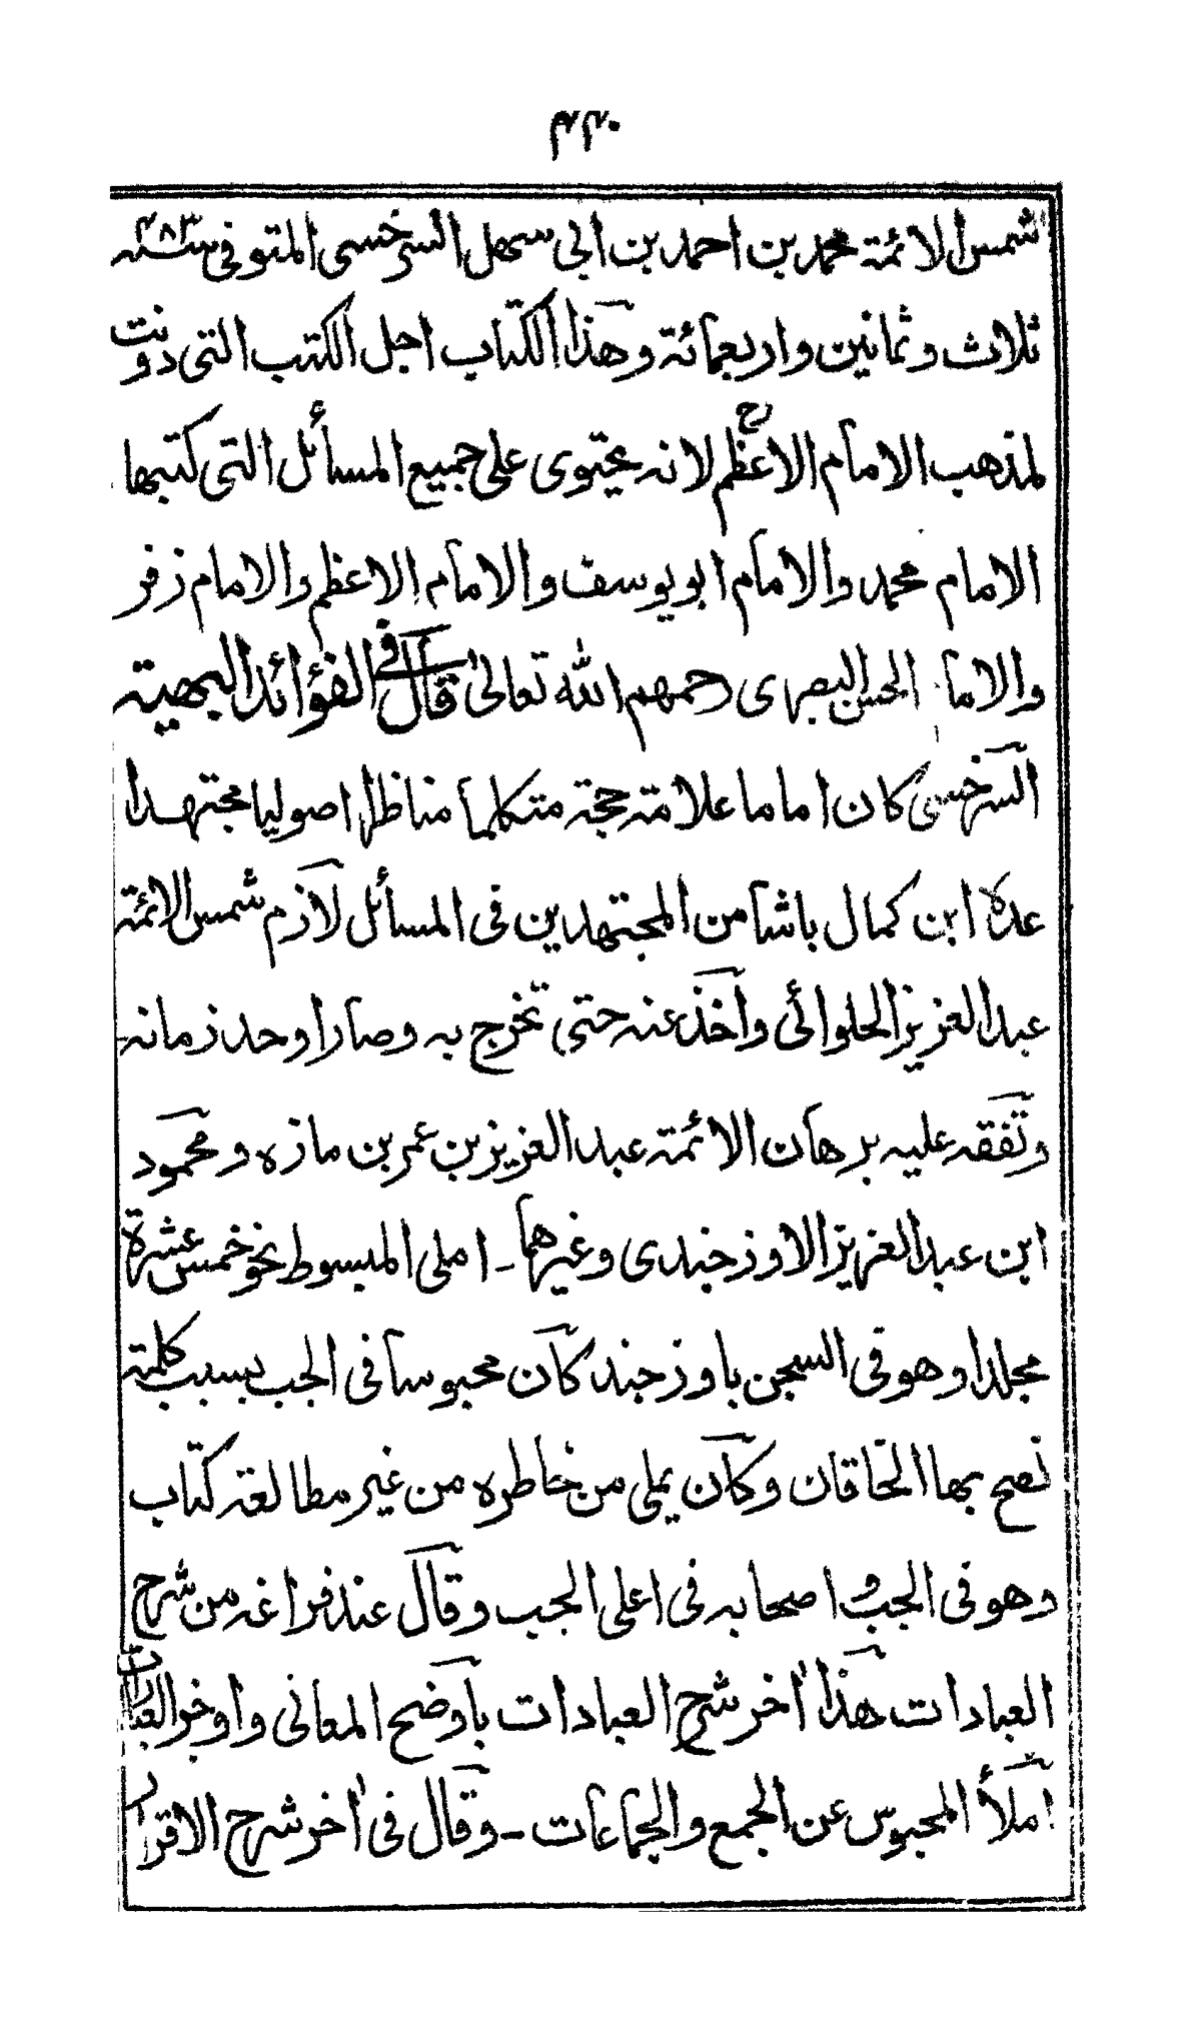 ۴۴۰
شمس الائمة محمد بن احمد بن ابى سهل السرخسى المتوفى سنه ۴۸۳
ثلاث وثمانين واربعمائة وهذا الكتاب اجل الكتب التى دونت
لمذهب الامام الاعظم رح لانه يحتوى على جميع المسائل التى كتبها
الامام محمد والامام ابو يوسف والامام الاعظم والامام زفر
والاما الحسن البصرى رحمهم الله تعالى قال فى الفوائد البهية
السرخسى كان اماما علامة حجة متكلما مناظرا اصوليا مجتهدا
عده ابن كمال باشا من المجتهدين فى المسائل لازم شمس الائمة
عبد العزيز الحلوائى واخذ عنه حتى تخرج به وصار اوحد زمانه
وتفقه عليه برهان الائمة عبد العزيز بن عمر بن مازه ومحمود
ابن عبد العزيز الاوزجندى وغيرهما - املى المبسوط نحو خمس عشرة
مجلدا وهو فى السجن باوزجند كان محبوسا فى الجب بسبب كلمة
نصح بها الخاقان وكان يملى من خاطره من غير مطالعة كتاب
وهو فى الجب و اصحابه فى اعلى الجب وقال عند فراغه من شرح
العبادات هذا اخر شرح العبادات باوضح المعانى واوجز العبارات
املأ المحبوس عن الجمع والجماعات - وقال فى اخر شرح الاقرار